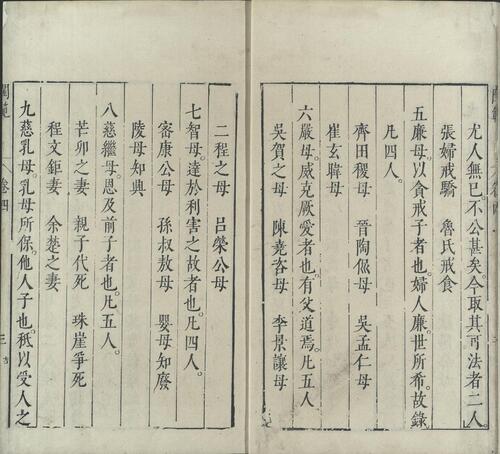 尤人無已。不公甚矣。今取其可法者二人。
張婦戒驕　魯氏戒食
五廉母。以貪戒子者也。婦人廉。世所希。故錄
凡四人。
齊田稷母　晉陶侃母　吳孟仁母
崔玄暐母
六嚴母。威克厥愛者也。有父道焉。凡五人
吳賀之母　陳堯咨母　李景讓母
二程之母　呂榮公母
七智母。達於利害之故者也。凡四人。
密康公母　孫叔敖母　嬰母知廢
陵母知興
八慈繼母。恩及前子者也。凡五人。
芒卯之妻　親子代死　珠崖爭死
程文鉅妻　余楚之妻
九慈乳母。乳母所保。他人子也。秪以受人之
閨範　卷四　三